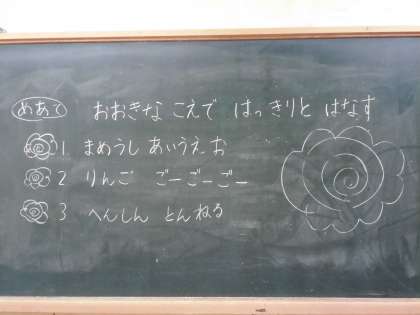 めあて おおきな こえで はっきりと はなす
1 まめうし あいうえお
2 りんご ごーごーごー
3 へんしん とんねる